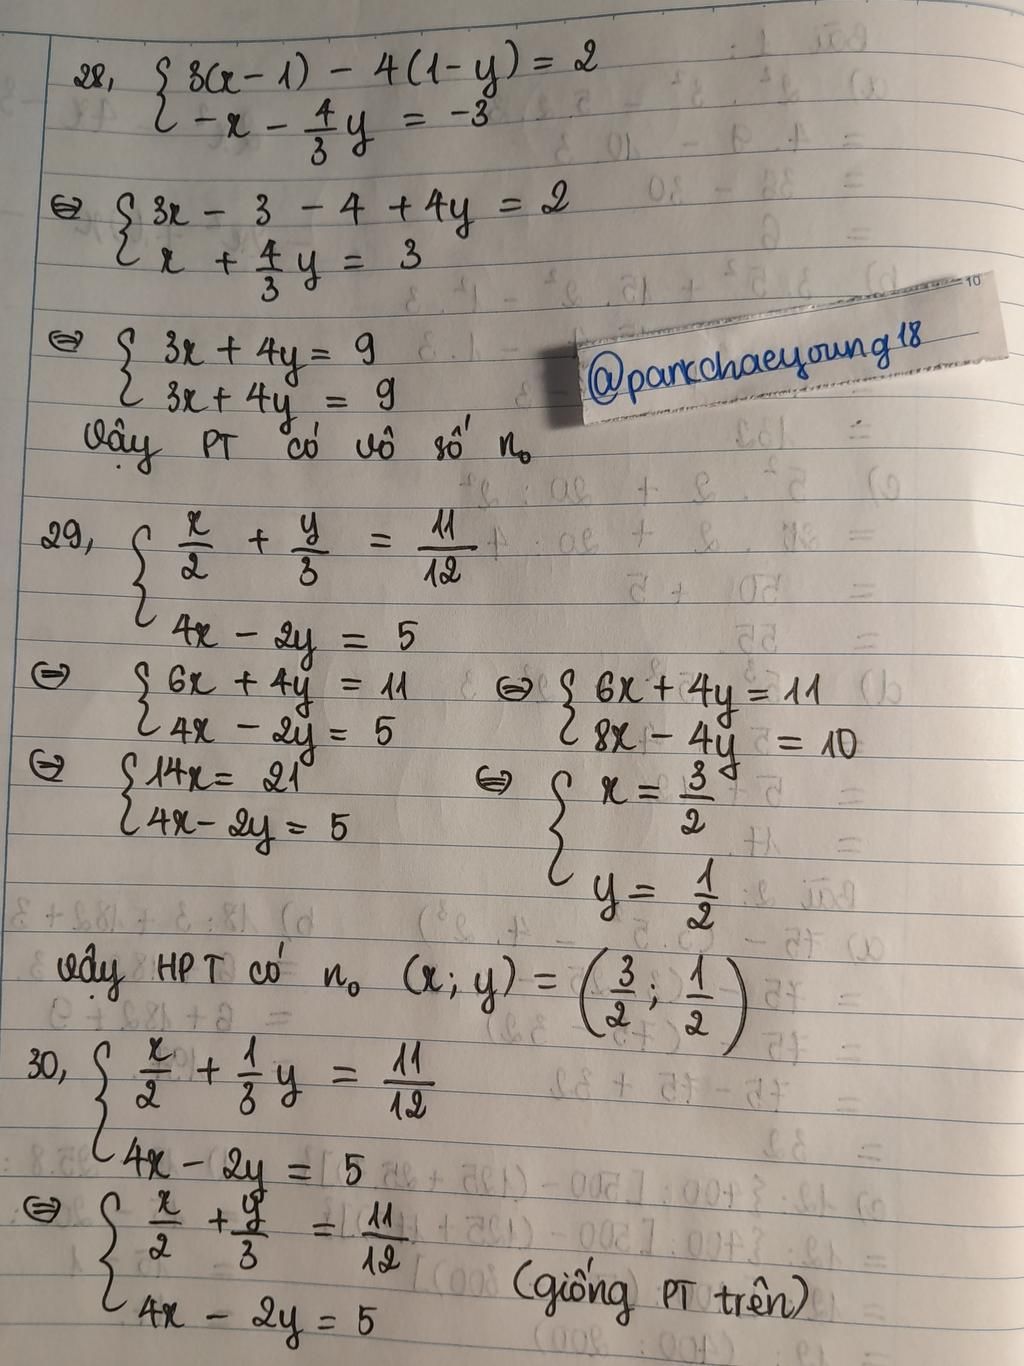 28, { 3(x - 1) - 4(1 - y) = 2
-x - 4/3 y = -3
⇔ { 3x - 3 - 4 + 4y = 2
x + 4/3 y = 3
10
⇔ { 3x + 4y = 9
3x + 4y = 9
@parkchaeyoung18
Vậy PT có vô số n₀
29, { x/2 + y/3 = 11/12
4x - 2y = 5
⇔ { 6x + 4y = 11 ⇔ { 6x + 4y = 11
4x - 2y = 5 8x - 4y = 10
⇔ { 14x = 21 ⇔ { x = 3/2
4x - 2y = 5 y = 1/2
Vậy HPT có n₀ (x; y) = (3/2; 1/2)
30, { x/2 + 1/3 y = 11/12
4x - 2y = 5
⇔ { x/2 + y/3 = 11/12
4x - 2y = 5 (giống PT trên)